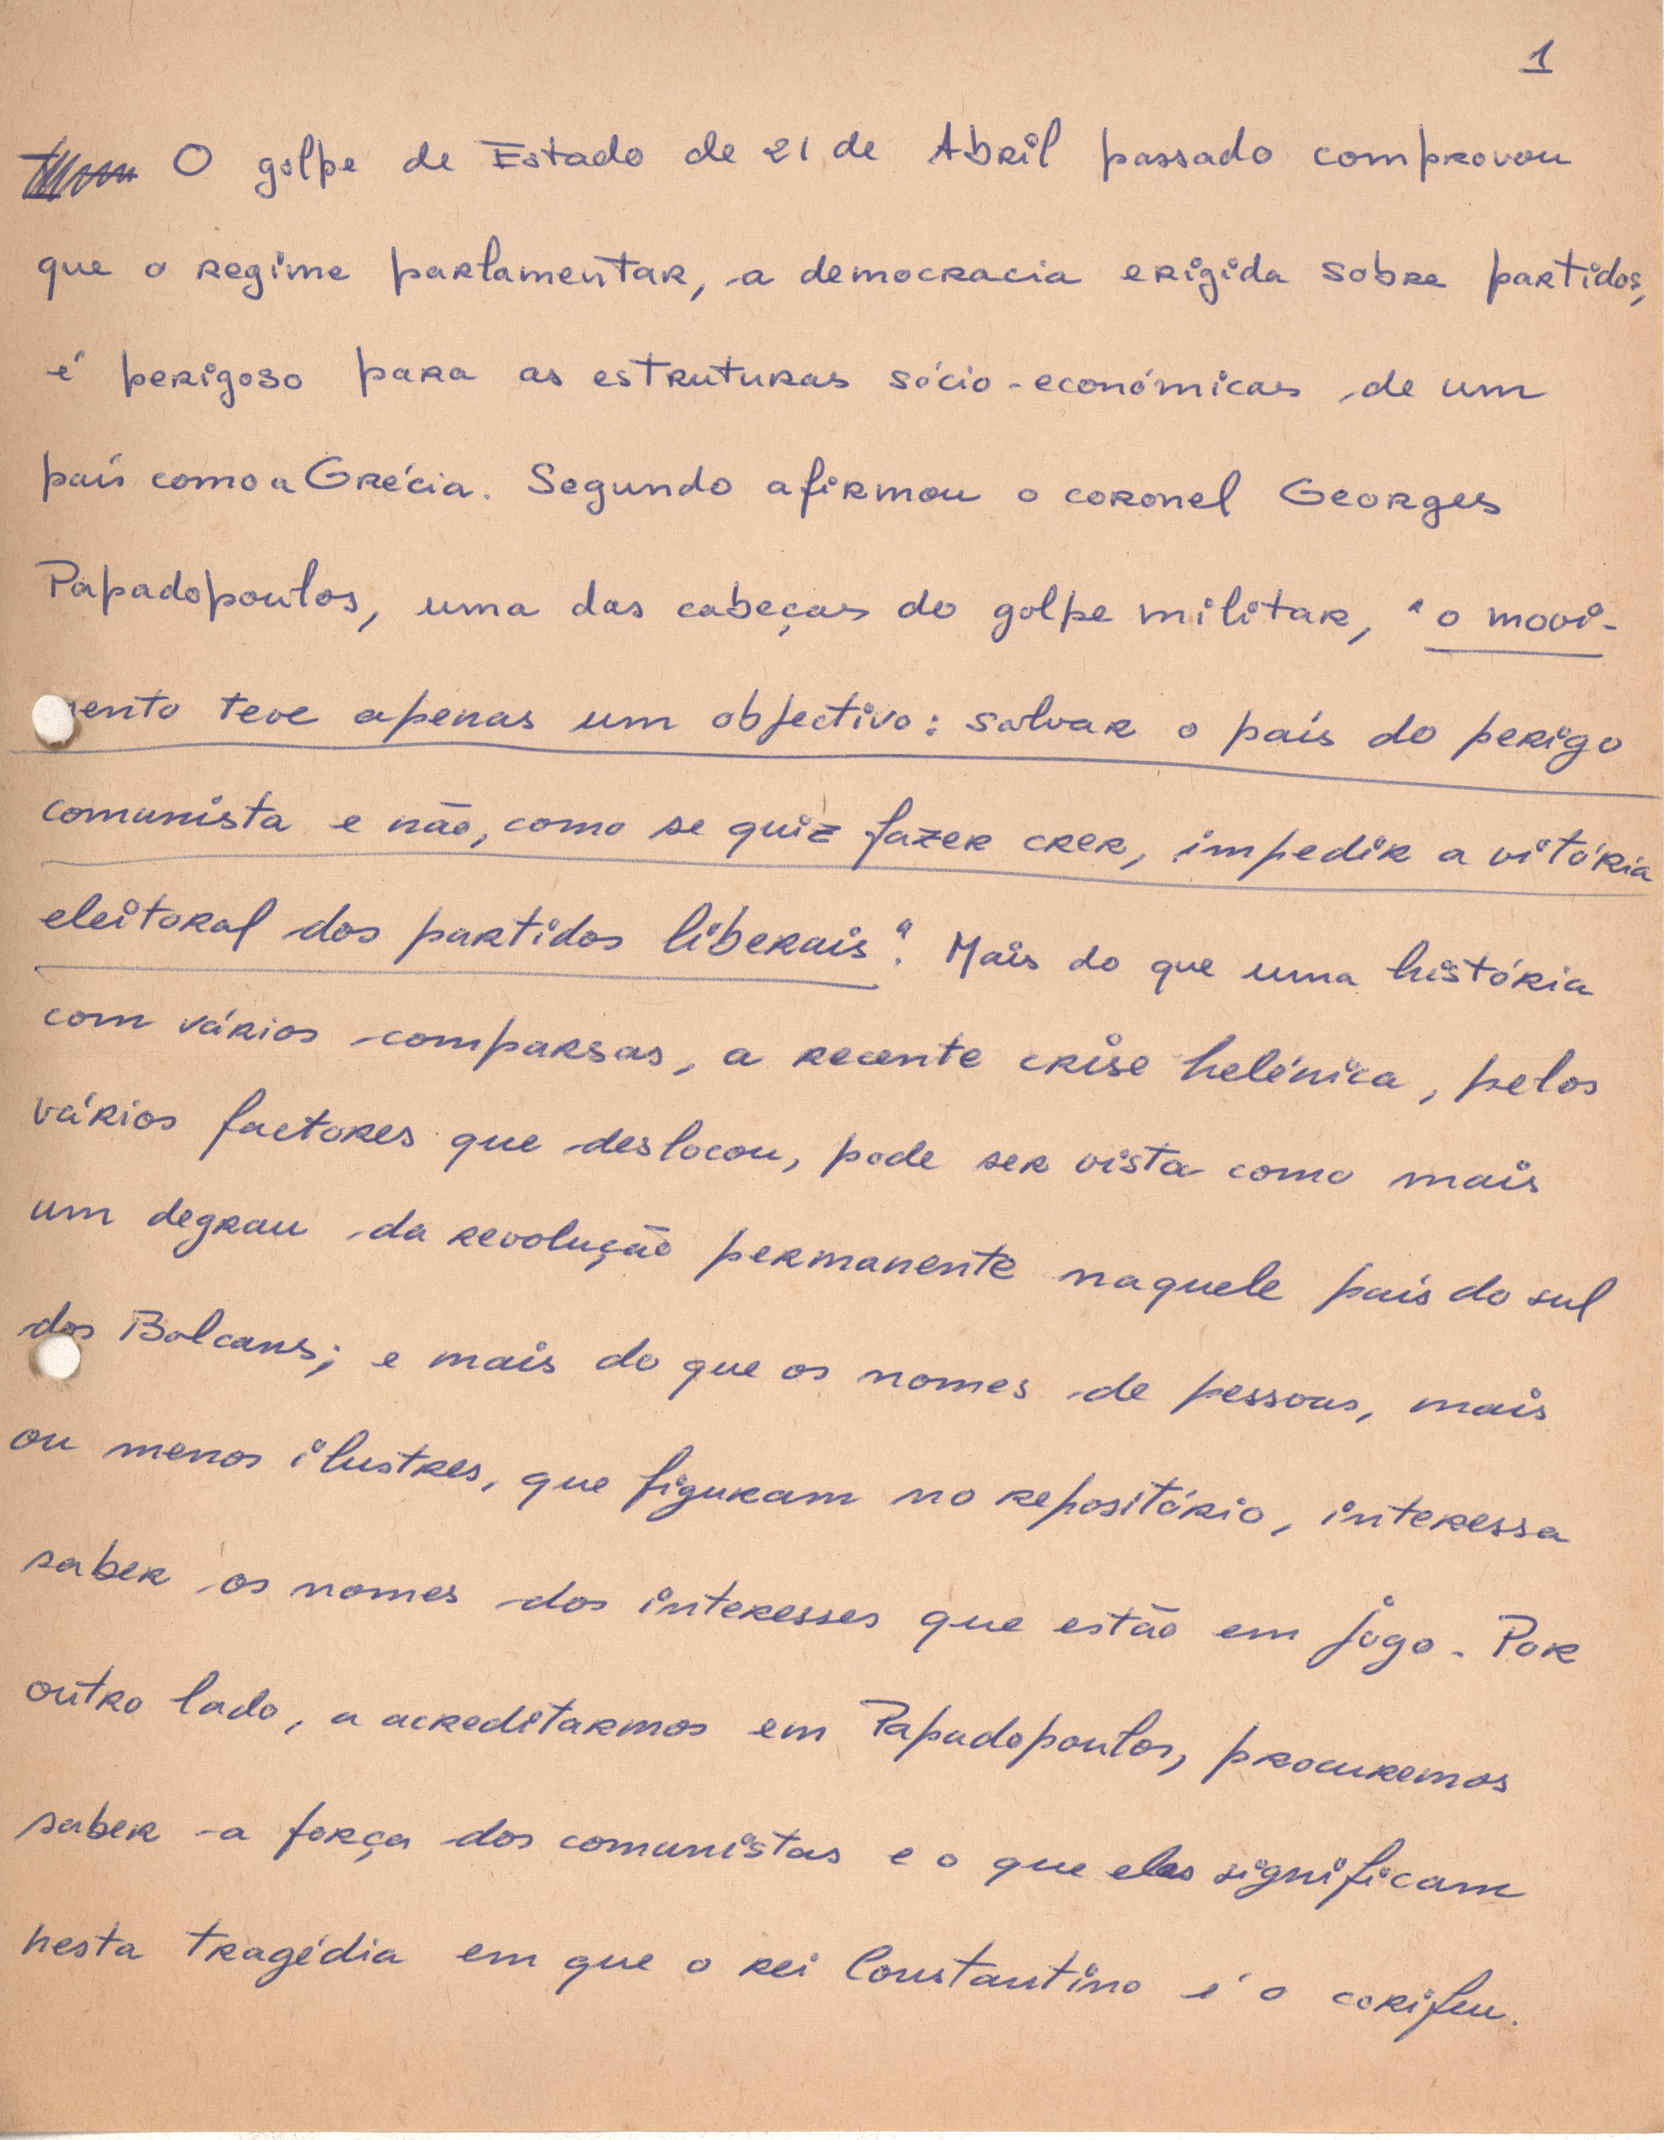 1
O golpe de Estado de 21 de Abril passado comprovou
que o regime parlamentar, a democracia erigida sobre partidos,
é perigoso para as estruturas sócio-económicas de um
país como a Grécia. Segundo afirmou o coronel Georges
Papadopoulos, uma das cabeças do golpe militar, "o movi-
mento teve apenas um objectivo: salvar o país do perigo
comunista e não, como se quiz fazer crer, impedir a vitória
eleitoral dos partidos liberais". Mais do que uma história
com vários comparsas, a recente crise helénica, pelos
vários factores que deslocou, pode ser vista como mais
um degrau da revolução permanente naquele país do sul
dos Balcans; e mais do que os nomes de pessoas, mais
ou menos ilustres, que figuram no repositório, interessa
saber os nomes dos interesses que estão em jogo. Por
outro lado, a acreditarmos em Papadopoulos, procuremos
saber a força dos comunistas e o que eles significam
nesta tragédia em que o rei Constantino é o corifeu.